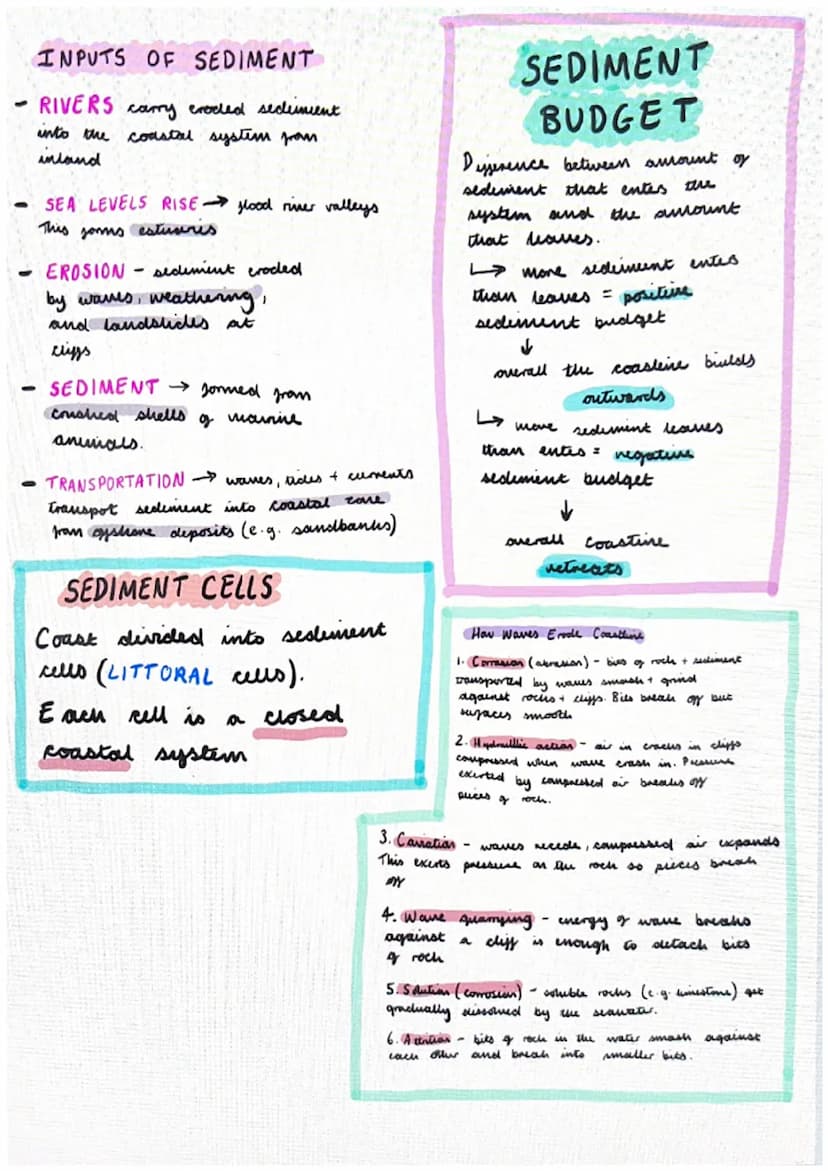 INPUTS OF SEDIMENT
- RIVERS carry eroded sediment
into the coastal system from
inland
- SEA LEVELS RISE → flood river valleys
This forms estuaries
- EROSION - sediment eroded
by waves, weathering,
and landslides at
cliffs
- SEDIMENT → formed from
crushed shells of marine
animals.
- TRANSPORTATION → waves, tides + currents
transport sediment into coastal zone
from offshore deposits (e.g. sandbanks)
SEDIMENT CELLS
Coast divided into sediment
cells (LITTORAL cells).
Each cell is a closed
coastal system
SEDIMENT
BUDGET
Difference between amount of
sediment that enters the
system and the amount
that leaves.
↳ more sediment enters
than leaves = positive
sediment budget
↓
overall the coastline builds
outwards
↳ more sediment leaves
than enters = negative
sediment budget
↓
overall coastline
retreats
How Waves Erode Coastline
1. Corrasion (abrasion) - bits of rock + sediment
transported by waves smash + grind
against rocks + cliffs. Bits break off but
surfaces smooth
2. Hydraulic action - air in cracks in cliffs
compressed when wave crash in. Pressure
exerted by compressed air breaks off
pieces of rock.
3. Cavitation - waves recede, compressed air expands
This exerts pressure on the rock so pieces break
off
4. Wave quarrying - energy of wave breaks
against a cliff is enough to detach bits
of rock
5. Solution (corrosion) - soluble rocks (e.g. limestone) get
gradually dissolved by the seawater.
6. Attrition - bits of rock in the water smash against
each other and break into smaller bits.